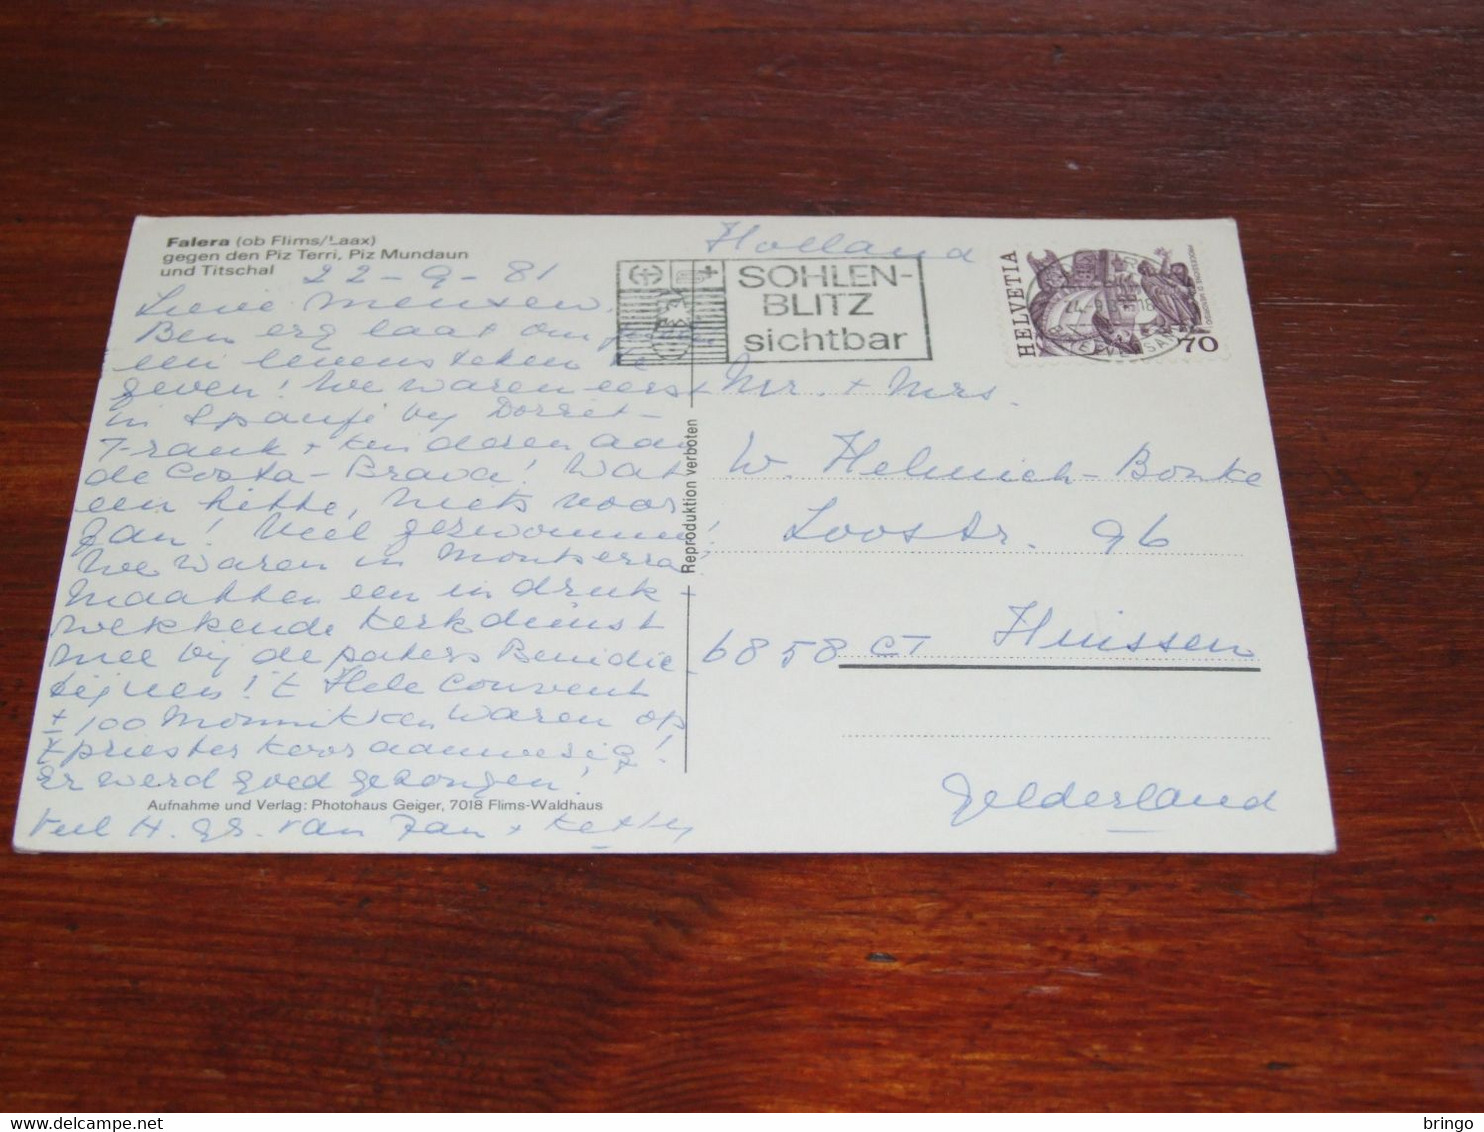 Falera (ob Flims/Laax)
gegen den Piz Terri, Piz Mundaun
und Titschal
22-9-81
Lieve mensen,
Ben erg laat om
een levensteken te
geven! We waren eerst
in Spanje by Dorret-
Frank + kinderen aan
de Costa-Brava! Wat
een hitte, niets voor
Jan! Veel gezwommen!
We waren in Montserrat
Maakten een indruk-
wekkende kerkdienst
mee bij de paters Benidic-
tijnen! 't Hele convent
± 100 Monnikken waren op
't priesterkoor aanwezig!
Er werd goed gezongen!
Aufnahme und Verlag: Photohaus Geiger, 7018 Flims-Waldhaus
Veel H. gr. van Jan +
Reproduktion verboten
Holland
SOHLEN-
BLITZ
sichtbar
HELVETIA
70
Mr. + Mrs.
W. Helmich-Bonke
Loostr. 96
6858 CT Huissen
Gelderland
bringo